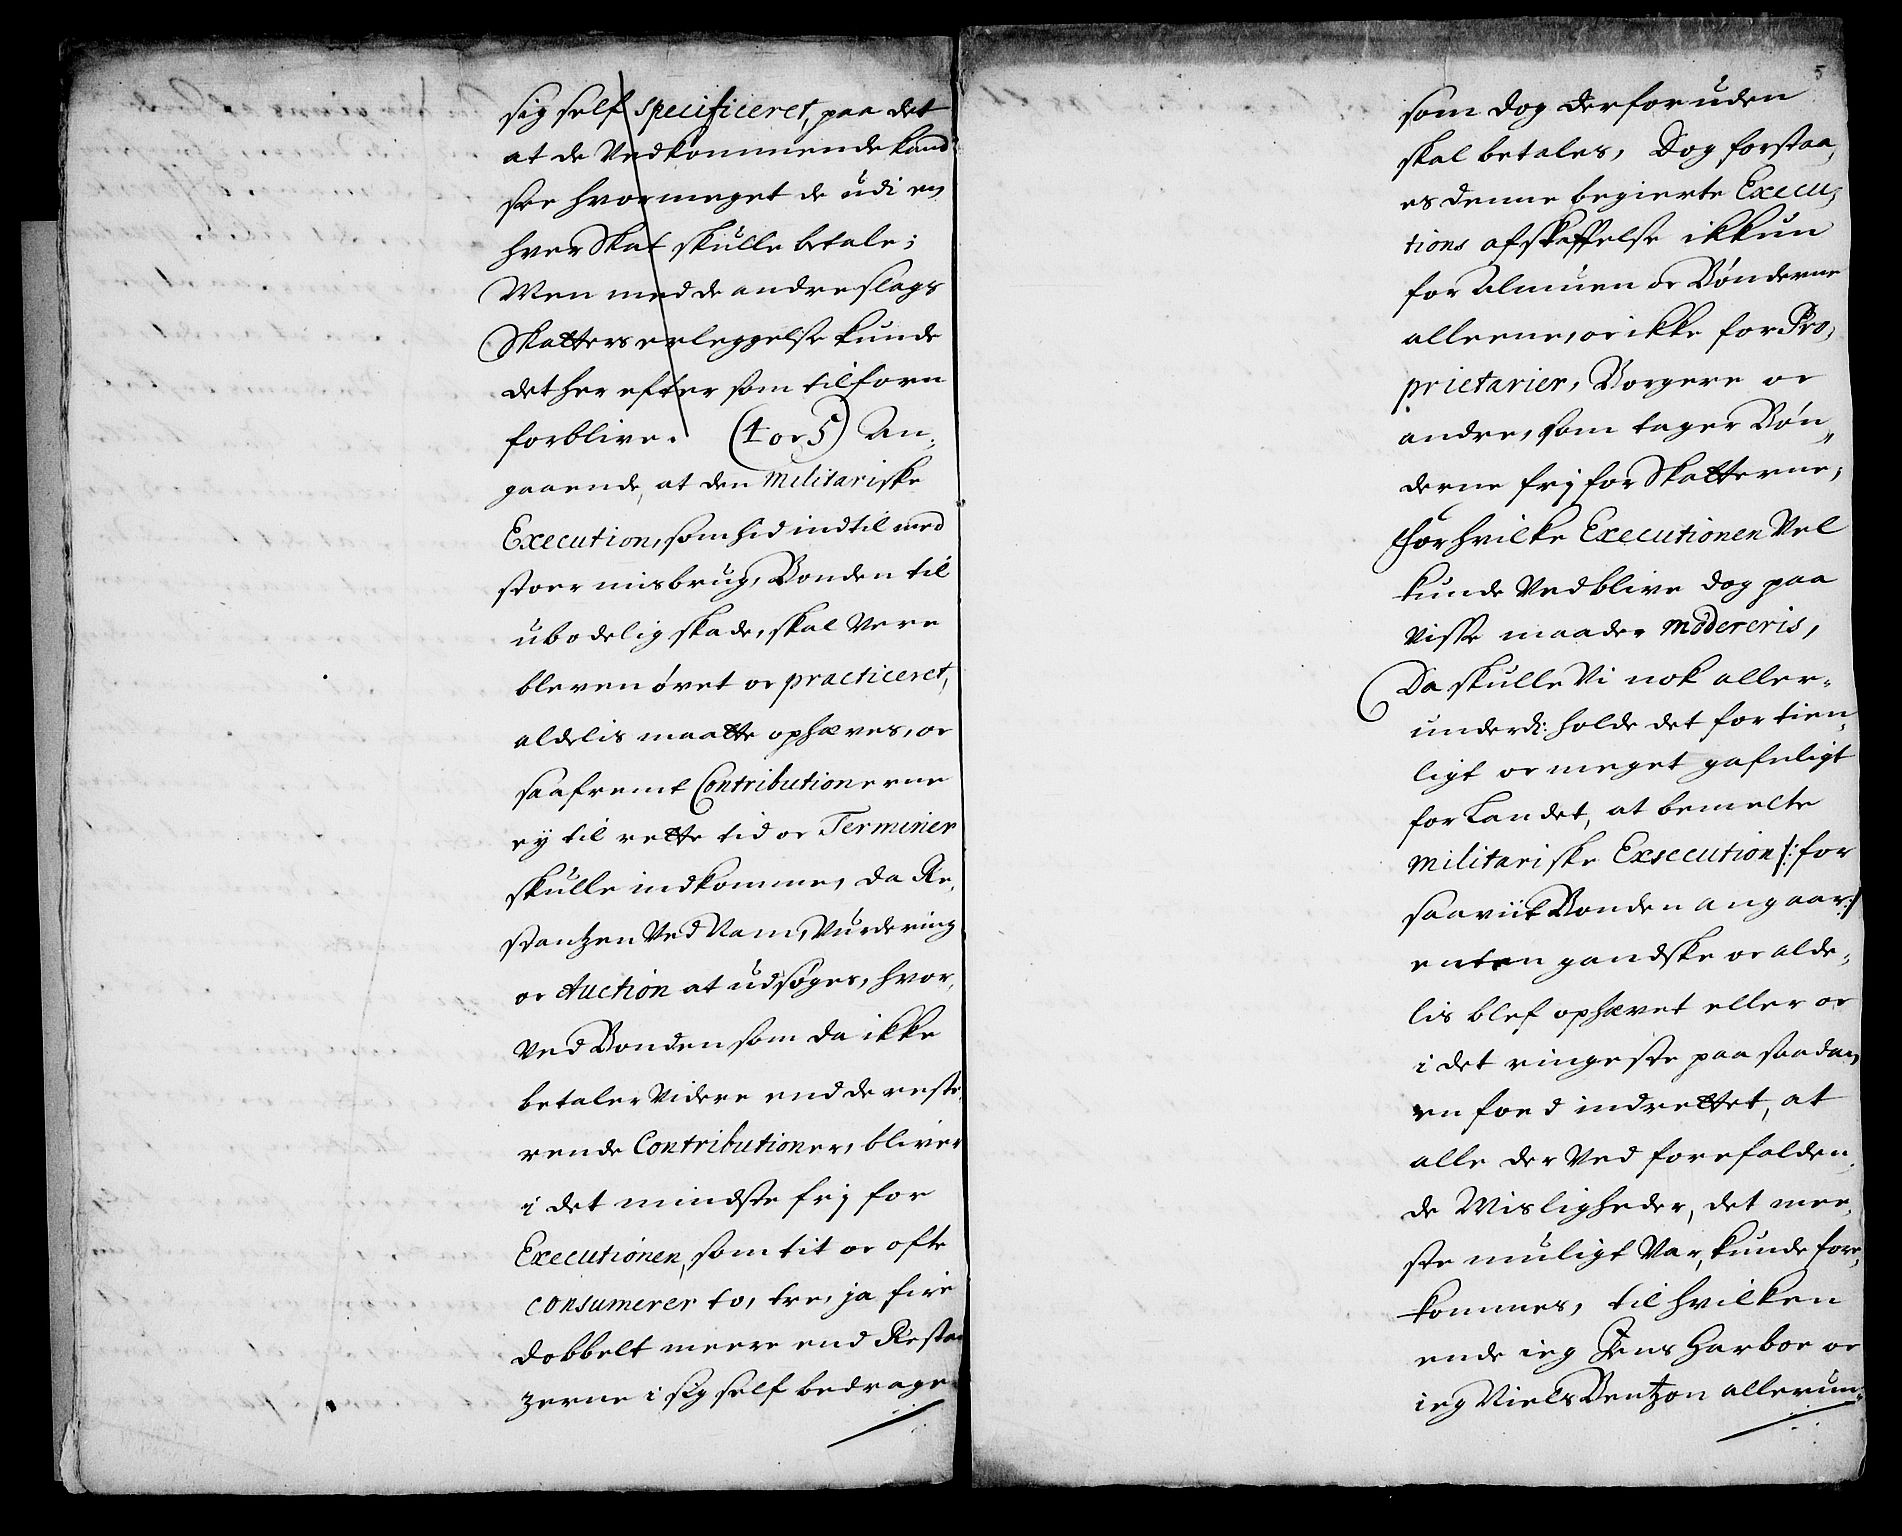 sig self specificeret, paa det
at de Vedkommende kand
see hvormeget de udi en,
hver Skat skulle betale;
Men med de andre slags
Skatters erleggelse kunde
det her efter som tilforn
forblive. (4 oc 5) An,
gaaende, at den Militariske
Execution, som hid indtil med
stoer misbrug, Bonden til
ubodelig skade, skal Vere
bleven øvet oc practiceret,
aldelis maatte ophæves, oc
saafremt Contributionerne
ey til rette tid oc Terminer
skulle indkomme, da Re,
stantzen Ved Nam, Vurdering
oc Auction at udsøges, hvor,
Ved Bonden som da ikke
betaler Videre end de reste,
rende Contributioner, bliver
i det mindste frj for
Executionen, som tit oc ofte
consumerer to, tre, ja fire
dobbelt meere end Restan
zerne i sig self bedrage
5
som dog derforuden
skal betales, Dog forstaa,
es denne begierte Execu,
tions afskaffelse ikkun
for Almuen oc Bønderne
alleene, oc ikke for Pro,
prietarier, Borgere oc
andre, som tager Bøn,
derne frj for Skatterne,
for hvilke Executionen Vel
kunde Vedblive dog paa
Visse maader modereris,
Da skulle Vi nok aller,
underd: holde det for tien,
ligt oc meget gafnligt
for Landet, at bemelte
Militariske Exsecution /: for
saaviit Bonden angaar :/
enten gandske oc alde,
lis blef ophævet eller oc
i det ringeste paa saadan
en foed indrettet, at
alle der Ved forefalden,
de Misligheder, det mee,
ste muligt Var, kunde fore,
kommes, til hvilken
ende ieg Jens Harboe oc
ieg Niels Bentzon allerun,